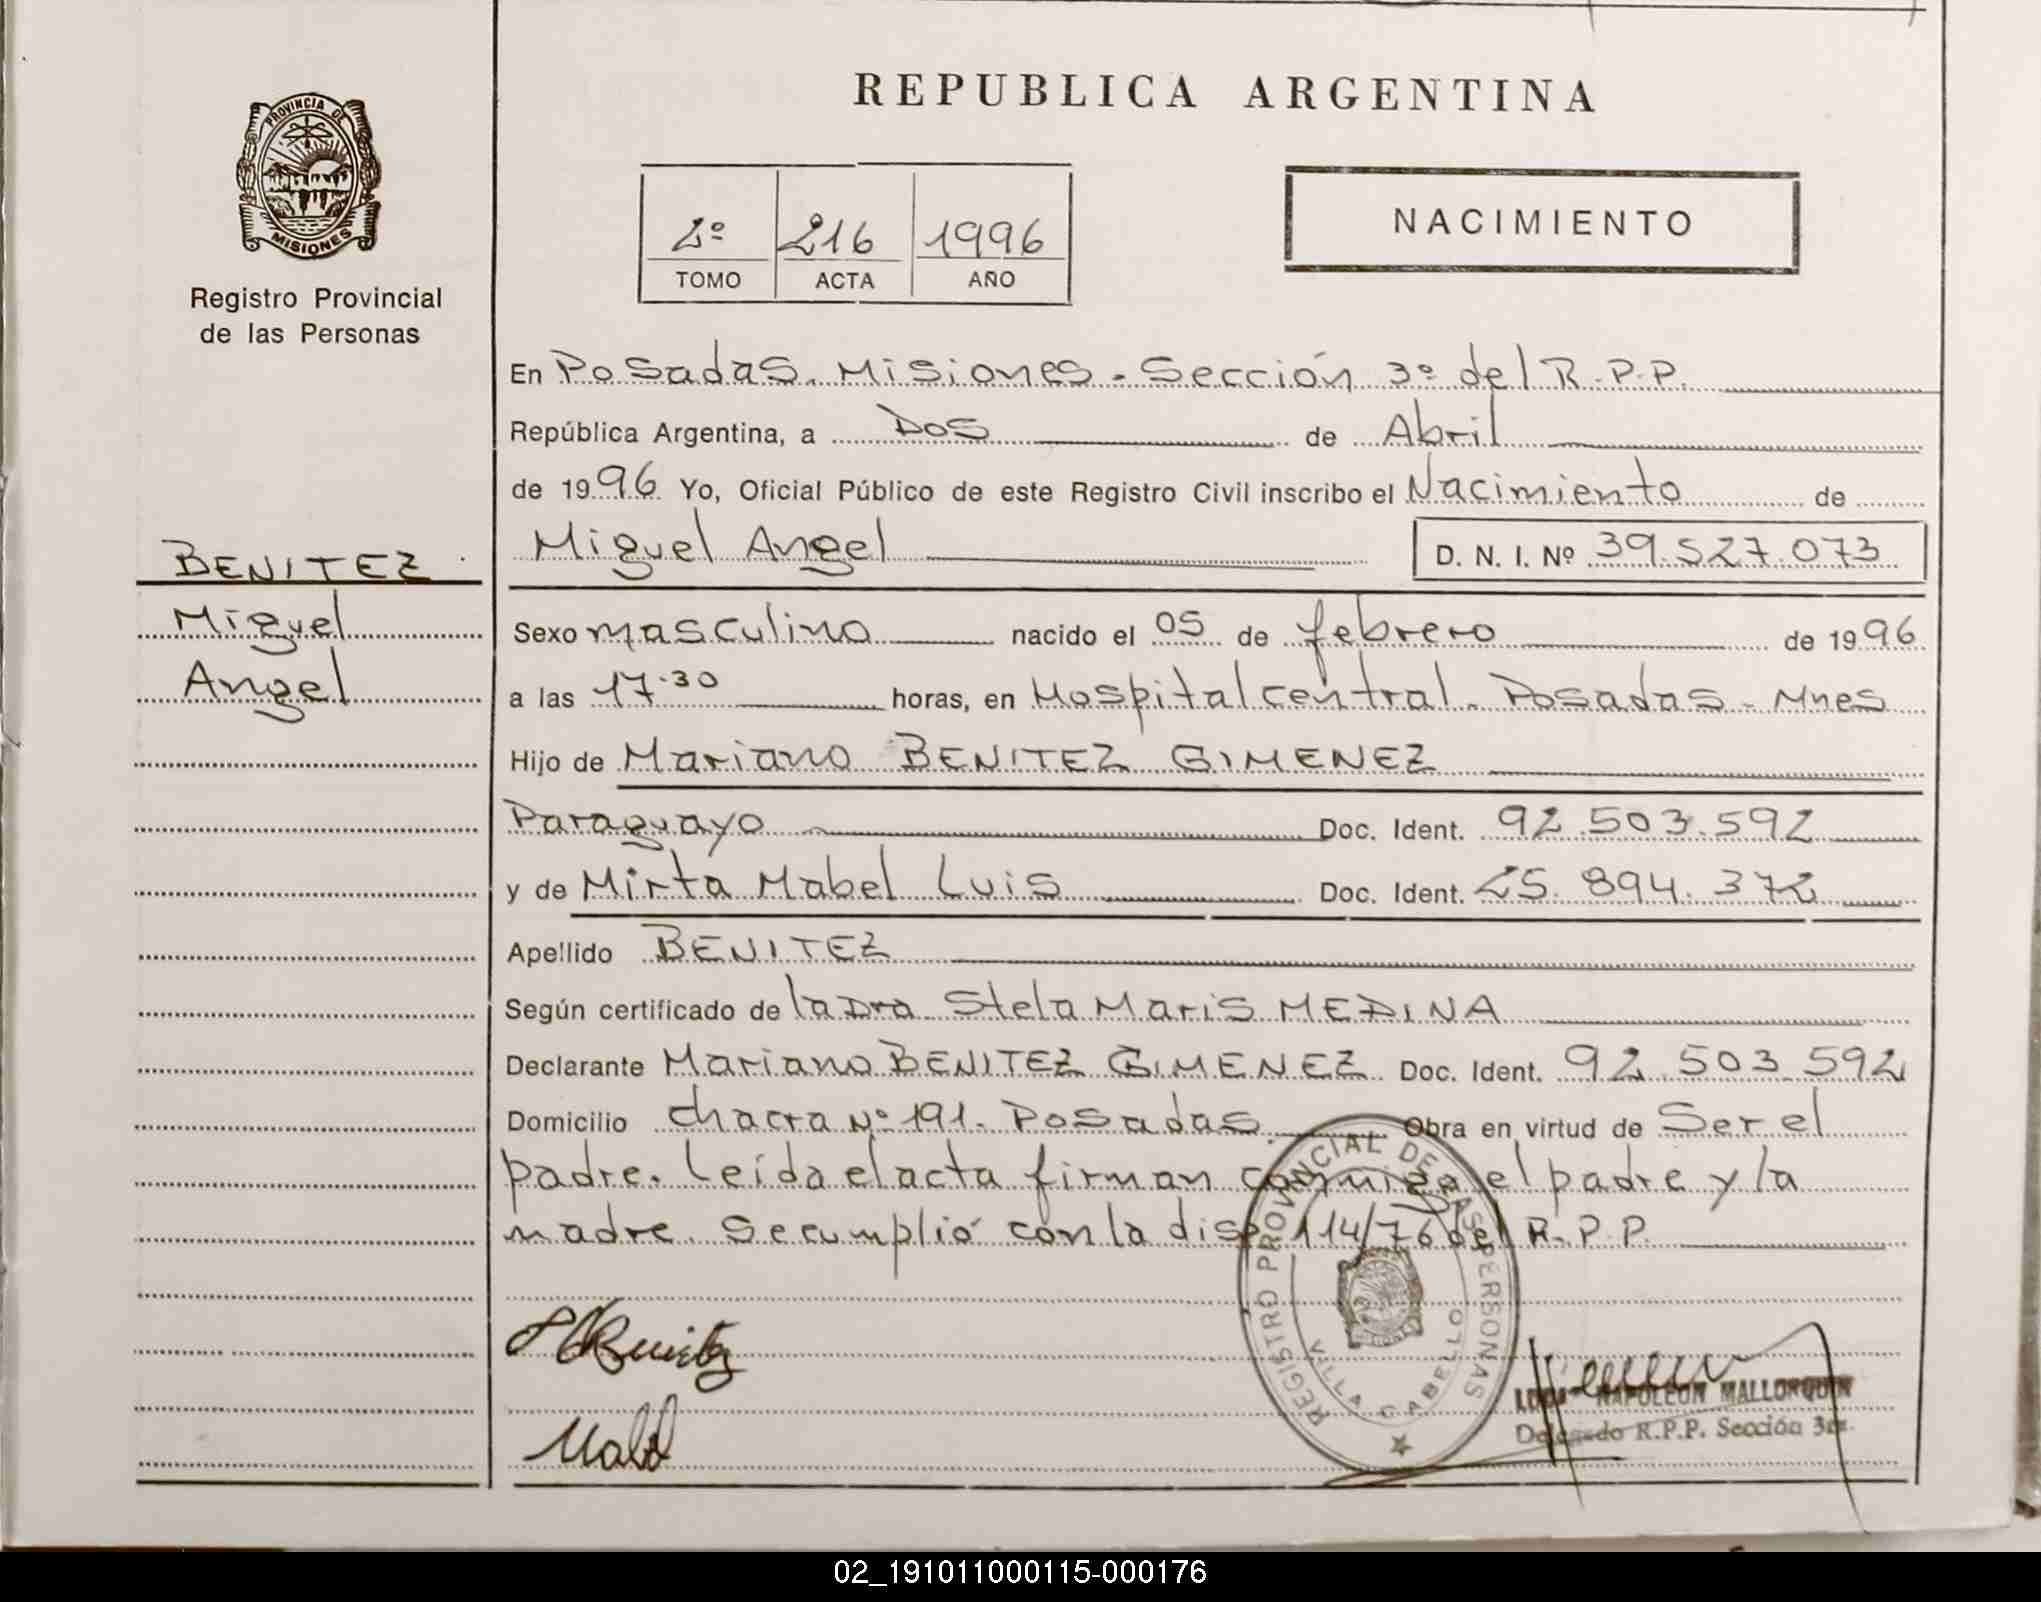 REPUBLICA ARGENTINA
PROVINCIA DE
MISIONES
Registro Provincial
de las Personas
2º 216 1996
TOMO ACTA AÑO
NACIMIENTO
En Posadas. Misiones - Sección 3º del R.P.P.
República Argentina, a Dos de Abril
de 1996 Yo, Oficial Público de este Registro Civil inscribo el Nacimiento de
Miguel Angel D. N. I. Nº 39.527.073
BENITEZ
Miguel
Angel
Sexo masculino nacido el 05 de febrero de 1996
a las 17.30 horas, en Hospital central. Posadas - Mnes
Hijo de Mariano BENITEZ GIMENEZ
Paraguayo Doc. Ident. 92.503.592
y de Mirta Mabel Luis Doc. Ident. 25.894.372
Apellido BENITEZ
Según certificado de la Dra Stela Maris MEDINA
Declarante Mariano BENITEZ GIMENEZ Doc. Ident. 92.503.592
Domicilio chacra Nº 191. Posadas. Obra en virtud de Ser el
padre. Leída el acta firman conmigo el padre y la
madre. Se cumplió con la disp. 114/76 del R.P.P.
REGISTRO PROVINCIAL DE LAS PERSONAS
VILLA CABELLO
NAPOLEON MALLORQUIN
Delegado R.P.P. Sección 3ra.
02_191011000115-000176